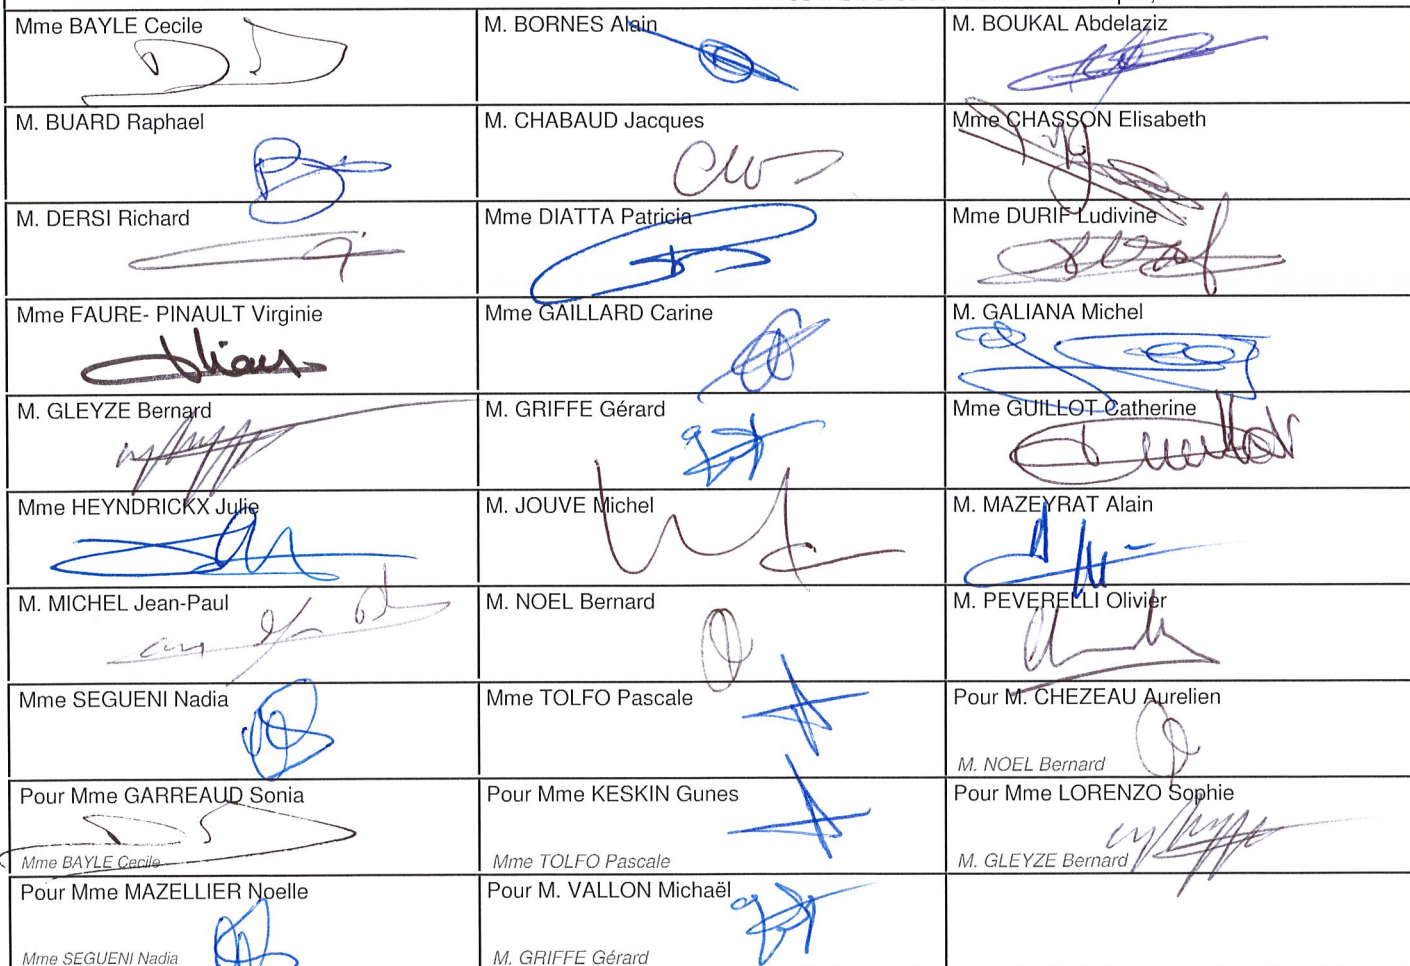 Mme BAYLE Cecile
M. BORNES Alain
M. BOUKAL Abdelaziz
M. BUARD Raphael
M. CHABAUD Jacques
Mme CHASSON Elisabeth
M. DERSI Richard
Mme DIATTA Patricia
Mme DURIF Ludivine
Mme FAURE- PINAULT Virginie
Mme GAILLARD Carine
M. GALIANA Michel
M. GLEYZE Bernard
M. GRIFFE Gérard
Mme GUILLOT Catherine
Mme HEYNDRICKX Julie
M. JOUVE Michel
M. MAZEYRAT Alain
M. MICHEL Jean-Paul
M. NOEL Bernard
M. PEVERELLI Olivier
Mme SEGUENI Nadia
Mme TOLFO Pascale
Pour M. CHEZEAU Aurelien
M. NOEL Bernard
Pour Mme GARREAUD Sonia
Mme BAYLE Cecile
Pour Mme KESKIN Gunes
Mme TOLFO Pascale
Pour Mme LORENZO Sophie
M. GLEYZE Bernard
Pour Mme MAZELLIER Noelle
Mme SEGUENI Nadia
Pour M. VALLON Michaël
M. GRIFFE Gérard